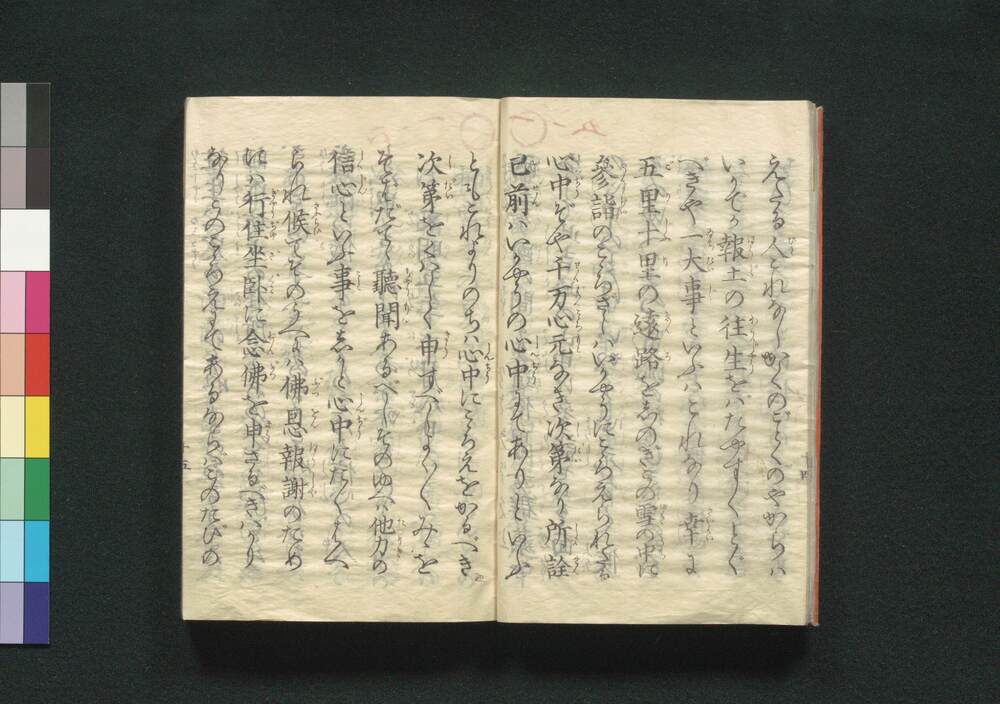 えたる人これなしかくのごとくのやからハ
いかでか報土の往生をばたやすくとぐ
べきや一大事といふハこれなり幸に
五里十里の遠路をしのぎこの雪の中に
參詣のこゝろざしハいかやうにこゝろえられたる
心中ぞや千万心元なき次第なり所詮
已前ハいかやうの心中にてありといふ
ともこれよりのちハ心中にこゝろえをかるべき
次第をくハしく申すべしよく〳〵みゝを
そばだてゝ聽聞あるべしそのゆへハ他力の
信心といふ事をしかと心中にたくハへ
られ候てそのうへにハ佛恩報謝のため
にハ行住坐臥に念佛を申さるべきばかり
なりこのこゝろえにてあるならばこのたびの